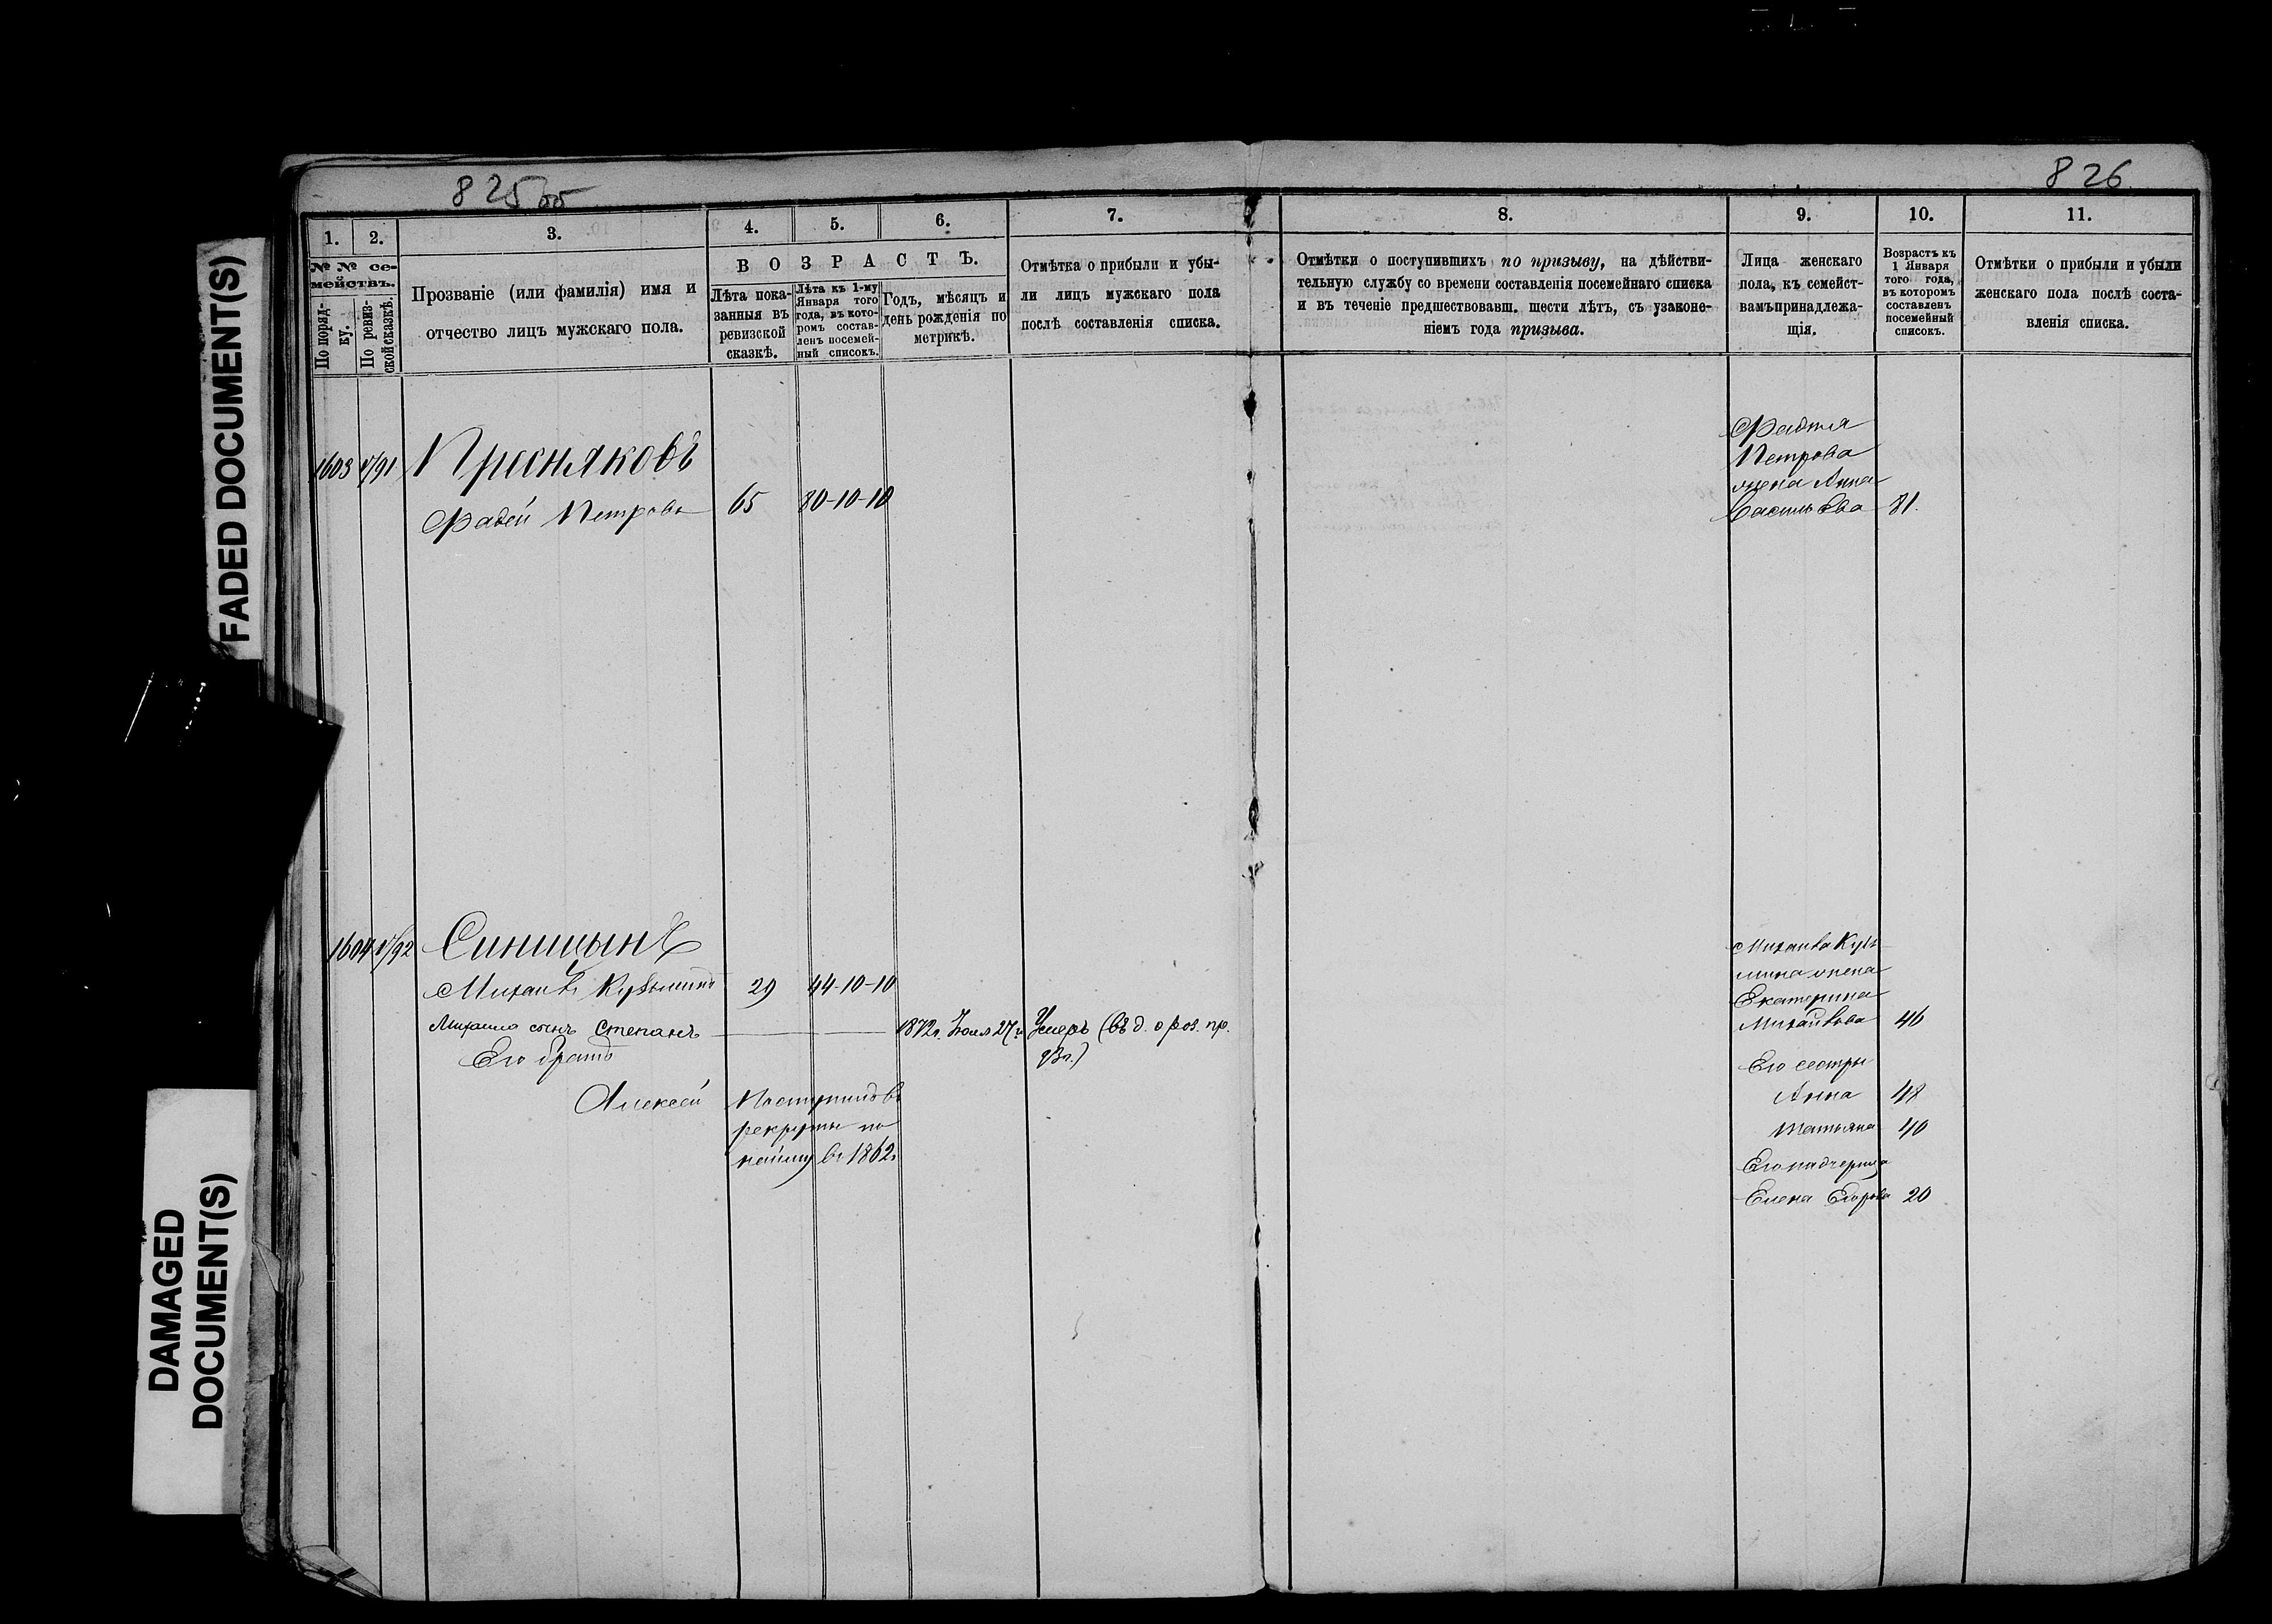 825об
826
FADED DOCUMENT(S)
DAMAGED
DOCUMENT(S)
1.
2.
3.
4.
5.
6.
7.
№ № се-
мействъ.
По поряд-
ку.
По ревиз-
ской сказкѣ.
Прозваніе (или фамилія) имя и
отчество лицъ мужскаго пола.
ВОЗРАСТЪ.
Лѣта пока-
занныя въ
ревизской
сказкѣ.
Лѣта къ 1-му
Января того
года, въ кото-
ромъ состав-
ленъ посемей-
ный списокъ.
Годъ, мѣсяцъ и
день рожденія по
метрикѣ.
Отмѣтка о прибыли и убы-
ли лицъ мужскаго пола
послѣ составленія списка.
8.
9.
10.
11.
Отмѣтки о поступившихъ по призыву, на дѣйстви-
тельную службу со времени составленія посемейнаго списка
и въ теченіе предшествовавш. шести лѣтъ, съ узаконе-
ніемъ года призыва.
Лица женскаго
пола, къ семейст-
вамъ принадлежа-
щія.
Возрастъ къ
1 Января
того года,
въ которомъ
составленъ
посемейный
списокъ.
Отмѣтки о прибыли и убыли
женскаго пола послѣ соста-
вленія списка.
1603
Пресняковъ
Фадей Петровъ 65 80-10-10
Фадея
Петрова
жена Анна
Васильева 81.
1604
Синицынъ
Михаилъ Кузьминъ 29 44-10-10
Михаила сынъ Степанъ 1872г. Іюля 27 Умеръ (въ д. о роз. пр.
93г.)
Его братъ
Алексей Поступилъ въ
рекруты по
найму въ 1862г
Михаила Кузь
мина жена
Екатерина
Михайлова 46
Его сестры
Анна 48
Татьяна 40
Его падчерица
Елена Егорова 20